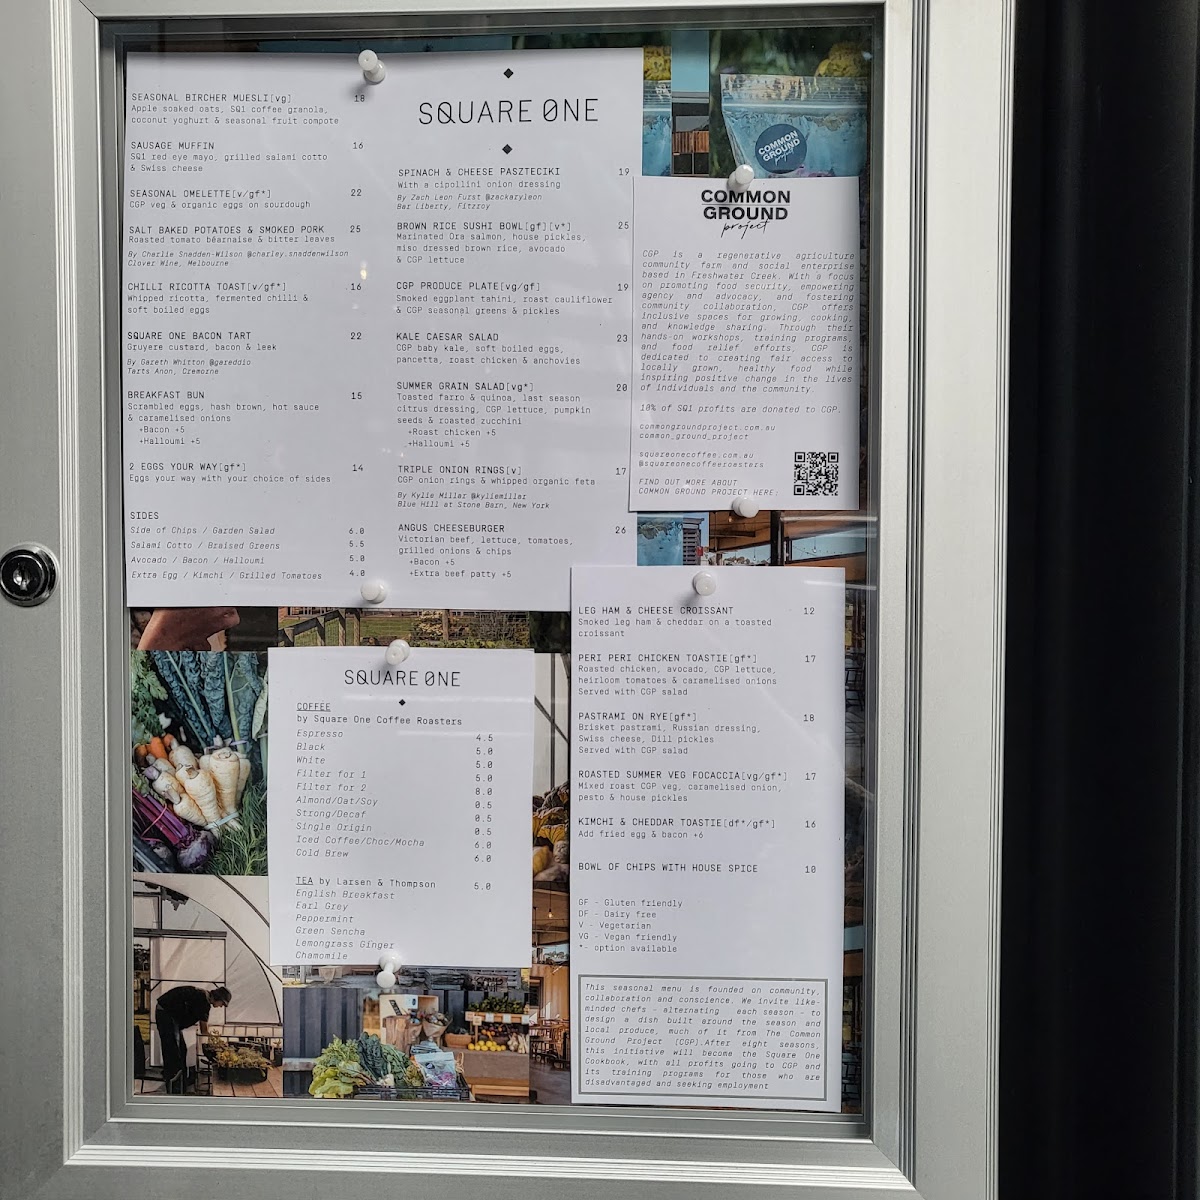 SEASONAL BIRCHER MUESLI[vg] 18
Apple soaked oats, SQ1 coffee granola,
coconut yoghurt & seasonal fruit compote
SAUSAGE MUFFIN 16
SQ1 red eye mayo, grilled salami cotto
& Swiss cheese
SEASONAL OMELETTE[v/gf*] 22
CGP veg & organic eggs on sourdough
SALT BAKED POTATOES & SMOKED PORK 25
Roasted tomato béarnaise & bitter leaves
By Charlie Snadden-Wilson @charley.snaddenwilson
Clover Wine, Melbourne
CHILLI RICOTTA TOAST[v/gf*] 16
Whipped ricotta, fermented chilli &
soft boiled eggs
SQUARE ONE BACON TART 22
Gruyere custard, bacon & leek
By Gareth Whitton @gareddio
Tarts Anon, Cremorne
BREAKFAST BUN 15
Scrambled eggs, hash brown, hot sauce
& caramelised onions
+Bacon +5
+Halloumi +5
2 EGGS YOUR WAY[gf*] 14
Eggs your way with your choice of sides
SIDES
Side of Chips / Garden Salad 6.0
Salami Cotto / Braised Greens 5.5
Avocado / Bacon / Halloumi 5.0
Extra Egg / Kimchi / Grilled Tomatoes 4.0
SQUARE ØNE
SPINACH & CHEESE PASZTECIKI 19
With a cipollini onion dressing
By Zach Leon Furst @zackaryleon
Bar Liberty, Fitzroy
BROWN RICE SUSHI BOWL[gf][v*] 25
Marinated Ora salmon, house pickles,
miso dressed brown rice, avocado
& CGP lettuce
CGP PRODUCE PLATE[vg/gf] 19
Smoked eggplant tahini, roast cauliflower
& CGP seasonal greens & pickles
KALE CAESAR SALAD 23
CGP baby kale, soft boiled eggs,
pancetta, roast chicken & anchovies
SUMMER GRAIN SALAD[vg*] 20
Toasted farro & quinoa, last season
citrus dressing, CGP lettuce, pumpkin
seeds & roasted zucchini
+Roast chicken +5
+Halloumi +5
TRIPLE ONION RINGS[v] 17
CGP onion rings & whipped organic feta
By Kylie Millar @kyliemillar
Blue Hill at Stone Barn, New York
ANGUS CHEESEBURGER 26
Victorian beef, lettuce, tomatoes,
grilled onions & chips
+Bacon +5
+Extra beef patty +5
COMMON
GROUND
project
COMMON
GROUND
project
CGP is a regenerative agriculture
community farm and social enterprise
based in Freshwater Creek. With a focus
on promoting food security, empowering
agency and advocacy, and fostering
community collaboration, CGP offers
inclusive spaces for growing, cooking,
and knowledge sharing. Through their
hands-on workshops, training programs,
and food relief efforts, CGP is
dedicated to creating fair access to
locally grown, healthy food while
inspiring positive change in the lives
of individuals and the community.
10% of SQ1 profits are donated to CGP.
commongroundproject.com.au
common_ground_project
squareonecoffee.com.au
@squareonecoffeeroasters
FIND OUT MORE ABOUT
COMMON GROUND PROJECT HERE:
SQUARE ØNE
COFFEE
by Square One Coffee Roasters
Espresso 4.5
Black 5.0
White 5.0
Filter for 1 5.0
Filter for 2 8.0
Almond/Oat/Soy 0.5
Strong/Decaf 0.5
Single Origin 0.5
Iced Coffee/Choc/Mocha 6.0
Cold Brew 6.0
TEA by Larsen & Thompson 5.0
English Breakfast
Earl Grey
Peppermint
Green Sencha
Lemongrass Ginger
Chamomile
LEG HAM & CHEESE CROISSANT 12
Smoked leg ham & cheddar on a toasted
croissant
PERI PERI CHICKEN TOASTIE[gf*] 17
Roasted chicken, avocado, CGP lettuce,
heirloom tomatoes & caramelised onions
Served with CGP salad
PASTRAMI ON RYE[gf*] 18
Brisket pastrami, Russian dressing,
Swiss cheese, Dill pickles
Served with CGP salad
ROASTED SUMMER VEG FOCACCIA[vg/gf*] 17
Mixed roast CGP veg, caramelised onion,
pesto & house pickles
KIMCHI & CHEDDAR TOASTIE[df*/gf*] 16
Add fried egg & bacon +6
BOWL OF CHIPS WITH HOUSE SPICE 10
GF - Gluten friendly
DF - Dairy free
V - Vegetarian
VG - Vegan friendly
*- option available
This seasonal menu is founded on community,
collaboration and conscience. We invite like-
minded chefs - alternating each season - to
design a dish built around the season and
local produce, much of it from The Common
Ground Project [CGP].After eight seasons,
this initiative will become the Square One
Cookbook, with all profits going to CGP and
its training programs for those who are
disadvantaged and seeking employment